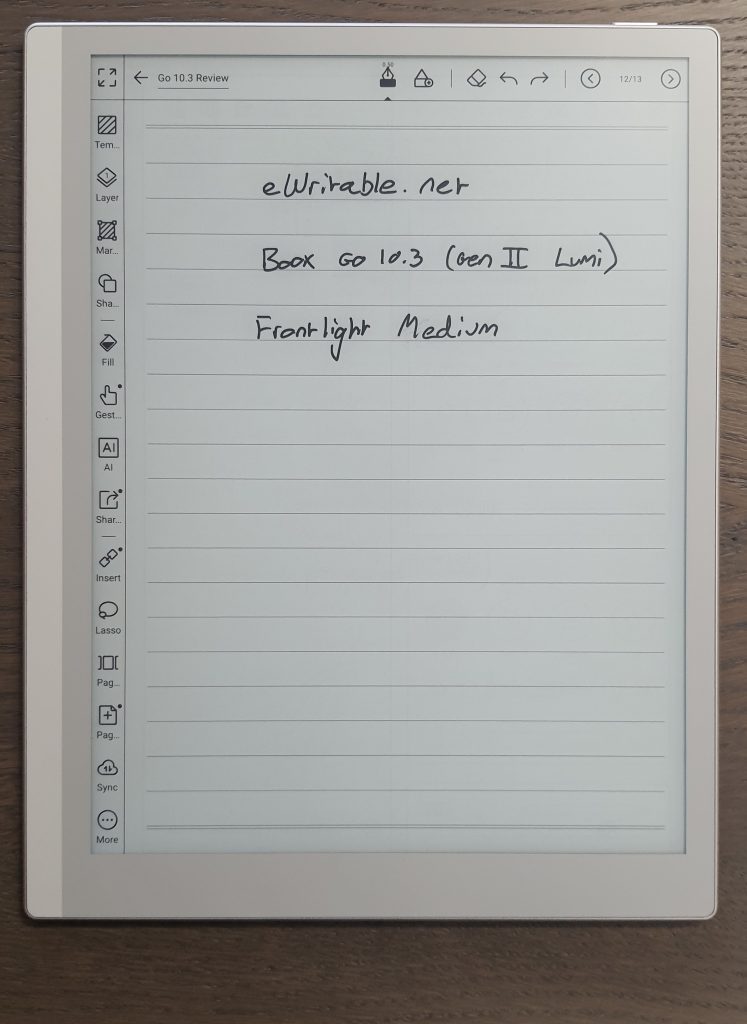 Go 10.3 Review
0.50
12/13
Tem...
Layer
Mar...
Sha...
Fill
Gest...
AI
AI
Shar...
Insert
Lasso
Pag...
Pag...
Sync
More
eWritable.net
Boox Go 10.3 (Gen II Lumi)
Frontlight Medium